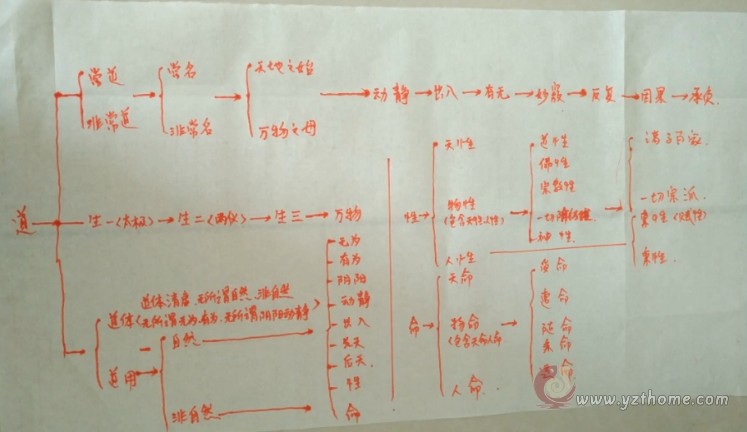 常道
非常道
常名
非常名
天地之始
万物之母
动静 出入 有无 妙徼 反复 因果 承负
道
生一(太极) 生二(两仪) 生三 万物
无为
有为
阴阳
动静
出入
先天
后天
性
命
道体清虚 无所谓自然 非自然
道体(无所谓无为、有为、无所谓阴阳动静)
道用
自然
非自然
性
天性
物性
(包含天性人性)
人性
道性
佛性
宗教性
一切
神性
诸子百家
一切宗派
禀性
命
天命
物命
(包含天命人命
人命
www.yzthome.com